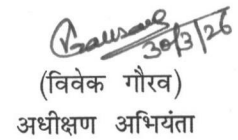 30/3/26
(विवेक गौरव)
अधीक्षण अभियंता